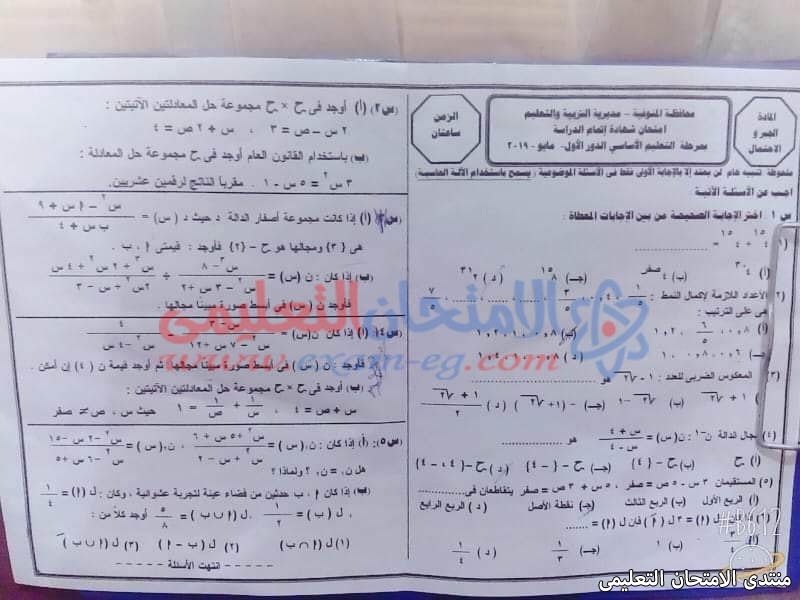 المادة
الجبر و
الاحتمال
محافظة المنوفية – مديرية التربية والتعليم
امتحان شهادة إتمام الدراسة
بمرحلة التعليم الأساسي الدور الأول- مايو - ٢٠١٩
الزمن
ساعتان
ملحوظة تنبيه هام: لن يعتد إلا بالإجابة الأولى فقط فى الأسئلة الموضوعية (يسمح باستخدام الآلة الحاسبة)
أجب عن الأسئلة الآتية
س١: اختر الإجابة الصحيحة من بين الإجابات المعطاة:
(١) ٤^١٥ + ٤^١٥ = ............
(أ) ٤^٣٠ (ب) ٤^صفر (جـ) ٨^١٥ (د) ٢^٣١
(٢) الأعداد اللازمة لإكمال النمط : ١/٥ ، ٠,٤ ، ٣/٥ ، ...... ، ...... ، ...... ، ٧/٥
هى على الترتيب :
(٣) المعكوس الضربى للعدد : √٢ - ١ هو ............
(أ) √٢ + ١ (ب) √٢ - ١ (جـ) - (√٢ + ١) (د) (√٢ + ١)/٢
(٤) مجال الدالة ن^-١ : ن(س) = (س + ٤)/(س - ٤) هو ............
(أ) ح (ب) ح - {٤} (جـ) ح - {-٤} (د) ح - {٤ ، -٤}
(٥) المستقيمان ٣ س - ٥ ص = صفر ، ٥ س + ٣ ص = صفر يتقاطعان فى ............
(أ) الربع الأول (ب) الربع الثالث (جـ) نقطة الأصل (د) الربع الرابع
(ب) ١ (جـ) ١/٣ (د) ١/٤
(س٢) (أ) أوجد فى ح × ح مجموعة حل المعادلتين الآتيتين :
٢ س – ص = ٣ ، س + ٢ ص = ٤
(ب) باستخدام القانون العام أوجد فى ح مجموعة حل المعادلة :
٣ س^٢ = ٥ س - ١ . مقرباً الناتج لرقمين عشريين.
س٣: (أ) إذا كانت مجموعة أصفار الدالة د حيث د (س) = (س^٢ - أ س + ٩)/(ب س + ٤)
هى {٣} ومجالها هو ح - {-٢} فأوجد : قيمتى أ ، ب .
(ب) إذا كان : ن (س) = (س^٣ - ٨)/(س^٢ - ٣ س + ٢) ÷ (س^٣ + ٢ س^٢ + ٤ س)/(س^٢ + ٢ س - ٣)
فأوجد ن (س) فى أبسط صورة مبيناً مجالها .
س٤: (أ) إذا كان ن(س) =
فأوجد : ن (س) فى أبسط صورة مبيناً مجالها، ثم أوجد قيمة ن (٤) إن أمكن .
(ب) أوجد فى ح × ح مجموعة حل المعادلتين الآتيتين :
س + ص = ٤ ، ١/س + ١/ص = ١ حيث س ، ص ≠ صفر
س٥: (أ) إذا كان : ن₁(س) = (س^٢ + ٥ س + ٦)/(س^٢ - ٢ س - ٨) ، ن₂(س) = (س^٢ - ٢ س - ١٥)/
هل ن₁ = ن₂ ؟ ولماذا ؟
(ب) إذا كان أ ، ب حدثين من فضاء عينة لتجربة عشوائية ، وكان : ل (أ) = ١/٤
ل (ب) = ١/٢ ، ل (أ ∪ ب) = ٥/٨ أوجد كلاً من :
(١) ل (أ ∩ ب) (٢) ل (ب - أ) (٣) ل (أ ∪ ب)
- - - - - انتهت الأسئلة - - - - -
الامتحان التعليمى
www.exam-eg.com
#B612
منتدى الامتحان التعليمى